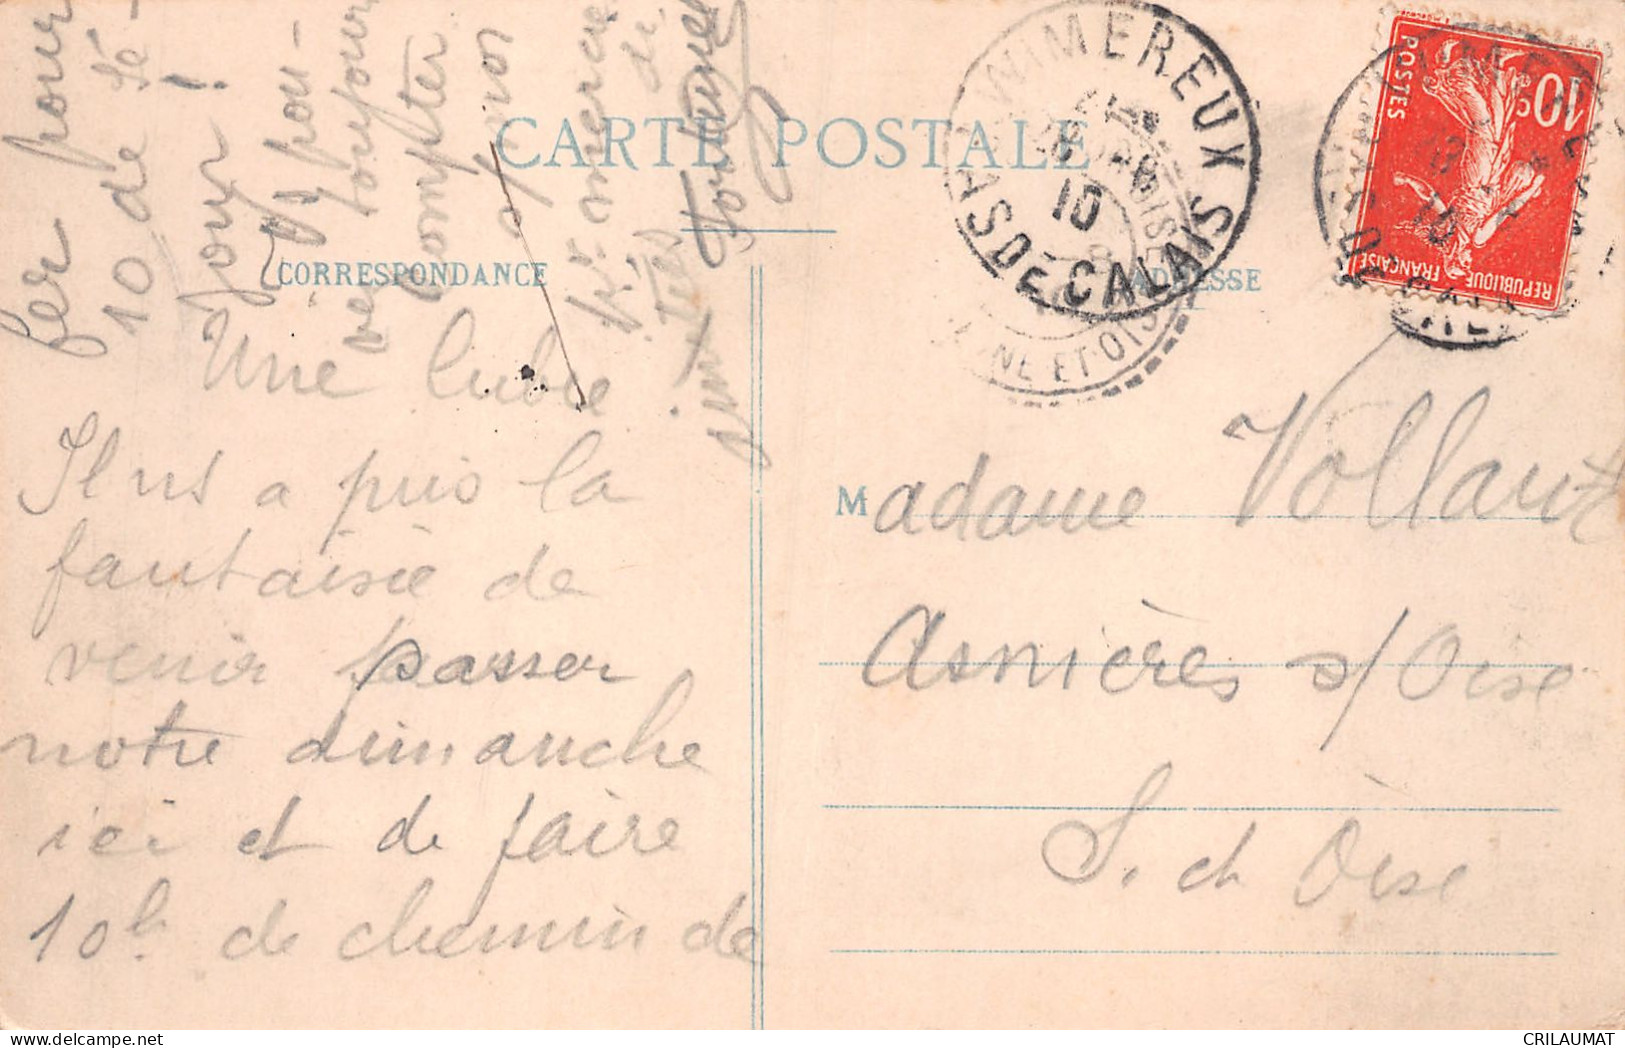 CARTE POSTALE
CORRESPONDANCE
ADRESSE
Une lubie
Il ns a pris la
fantaisie de
venir passer
notre dimanche
ici et de faire
10h de chemin de
fer pour
10 de sé-
jour !
Vs pou-
vez toujours
compter
s/nos
de
Fortunes
Madame Vollant
Asnières s/Oise
S. et Oise
WIMEREUX
PAS DE CALAIS
10
NE ET OISE
10c
POSTES
REPUBLIQUE
FRANÇAISE
CRILAUMAT